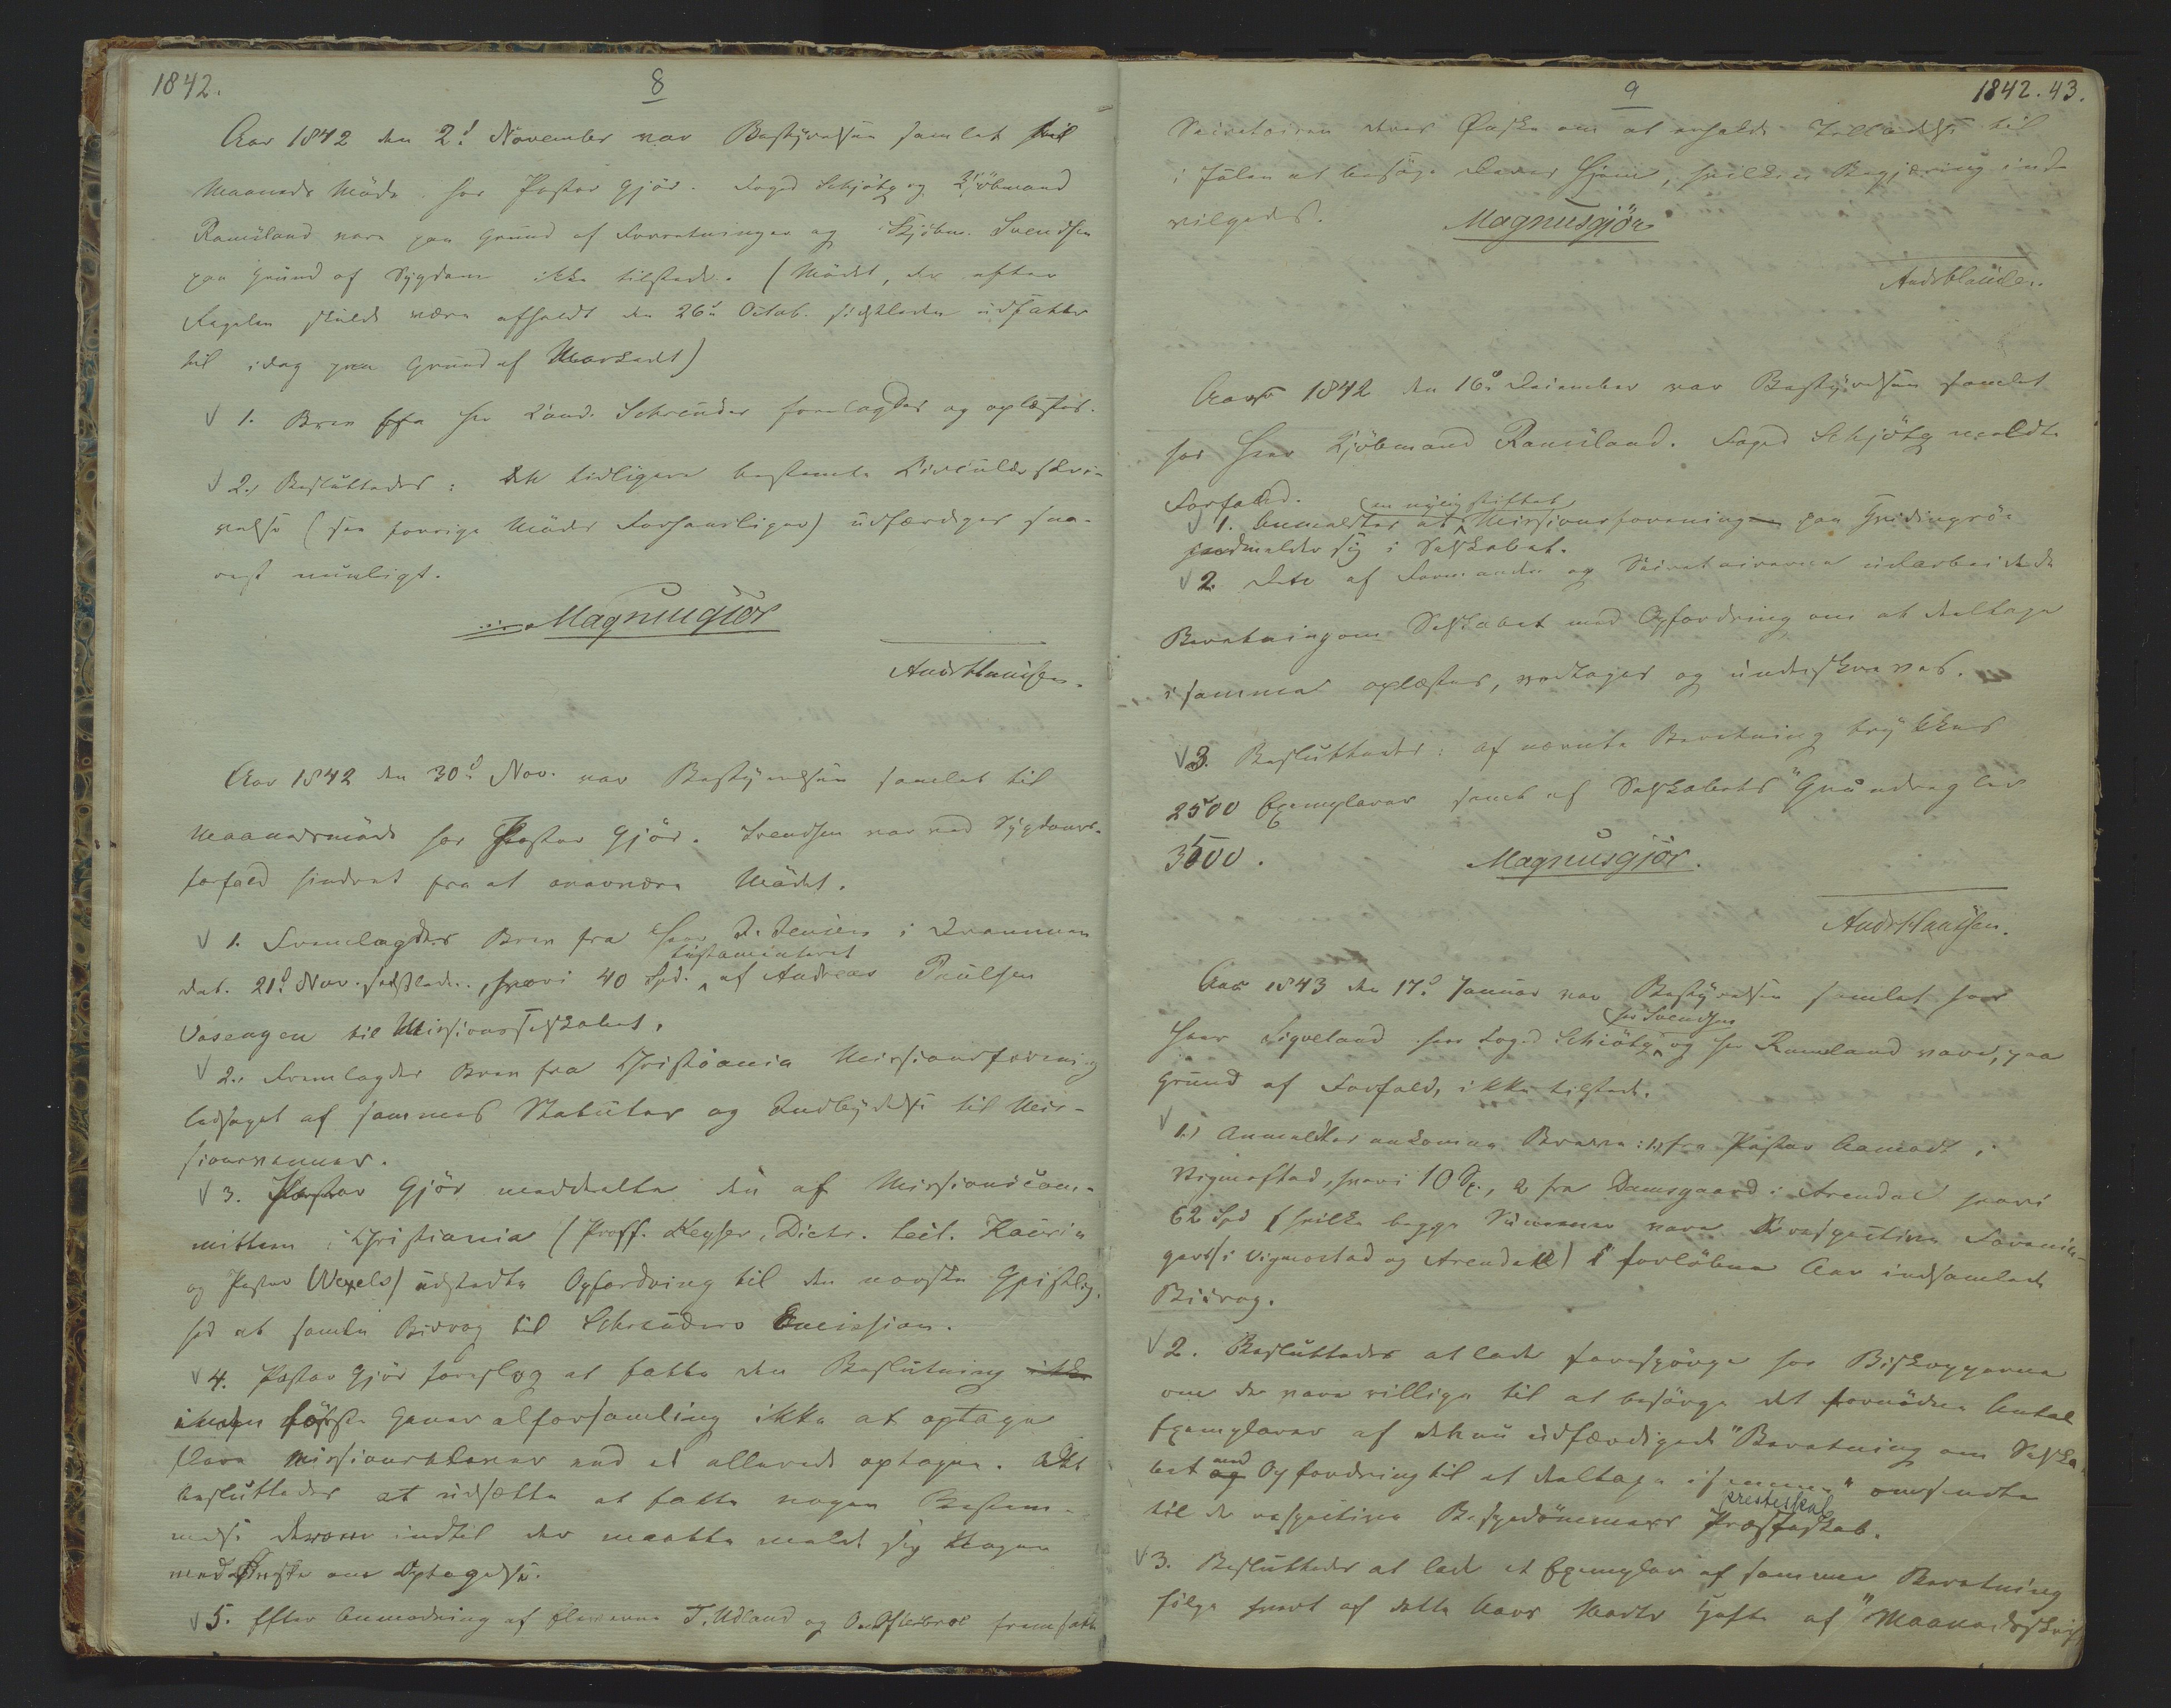 1842.
8
Aar 1842 den 2d November var Bestyrelsen samlet til
Maaneds Møde hos Pastor Gjør. Foged Schjøtz og Kjøbmand
Ramsland vare paa Grund af Forretninger og Kjøbm. Svendsen
paa Grund af Sygdom ikke tilstede. (Mødet, der efter
Regelen skulde være afholdt den 26d Octob. sidstleden udsattes
til idag paa Grund af Markedet)
1. Brev fra Hr Cand. Schreuder fremlagdes og oplæstes.
2. Besluttedes: det tidligere bestemte Circulær skri-
velse (see forrige Mødes Forhandlinger) udfærdiges snar-
est muuligt.
Magnusgjør
Andr Hauschen.
Aar 1842 den 30d Nov. var Bestyrelsen samlet til
Maanedsmøde hos Pastor Gjør. Svendsen var ved Sygdoms-
forfald hindret fra at overvære Mødet.
1. Fremlagdes Brev fra Herr I. Jensen i Drammen
testamenteret
dat. 21d Nov. sidstleden, hvori 40 Spd. af Andreas Poulsen
Vosengen til Missionsselskabet.
2. Fremlagdes Brev fra Christiania Missionsforening
ledsaget af sammes Statuter og Indbydelse til Mis-
sionsvenner.
3. Pastor Gjør meddeelte den af Missionscom-
mitteen i Christiania (Proff. Keyser, Dietr. Lect. Kaurin
og Pastor Wexels) udstedte Opfordring til den norske Geistlig-
hed at samle Bidrag til Schreuders Emission.
4. Pastor Gjør foreslog at fatte den Beslutning ikke
inden første Generalforsamling ikke at optage
flere Missionselever end de allerede optagne. Det
besluttedes at udsætte at fatte nogen Bestem-
melse derom indtil der maatte melde sig Nogen
med Ønske om Optagelse.
5. Efter Anmodning af Eleverne T. Udland og fremsatte
9
1842.43.
Secretairen deres Ønske om at erholde Tilladelse til
i Julen at besøge deres Hjem, hvilken Begjæring ind-
vilgedes.
Magnusgjør
Andr Hauschen.
Aar 1842 den 16d December var Bestyrelsen samlet
hos Herr Kjøbmand Ramsland. Foged Schjøtz meldte
Forfald.
en nylig stiftet
1. Anmeldtes at Missionsforening paa Hvidingsø-
indmelder sig i Selskabet.
2. Den af Formanden og Secretairerne udarbeidede
Beretning om Selskabet med Opfordring om at deeltage
i samme oplæstes, vedtoges og underskreves.
3. Besluttedes: af nævnte Beretning trykkes
2500 Exemplarer samt af Selskabets "Grundregler
3500.
Magnusgjør.
Andr Hauschen.
Aar 1843 den 17d Januar var Bestyrelsen samlet hos
Hr Svendsen
Herr Sigveland hvor Foged Schiøtz og Hr Ramsland vare, paa
Grund af Forfald, ikke tilstede.
1.) Anmeldtes ankomne Brevene: 1, fra Pastor Aamodt i
Vigmostad, hvori 10 Sp., 2 fra Damsgaard i Arendal hvori
62 Spd (hvilke begge Summer vare de respective Forenin-
gers (i Vigmostad og Arendal) i forløbne Aar indsamlede
Bidrag.
2. Besluttedes at lade forespørge hos Biskopperne
om de vare villige til at besørge det fornødne Antal
Exemplarer af den nu udfærdigede "Beretning om Selska-
med
bet og Opfordring til at deeltage i samme" omsendte
presteskab
til de respective Bispedømmers Præsteskab.
3. Besluttedes at lade et Exemplar af samme Beretning
følge hvert af dette Aars Hefte af "Maanedsskrift